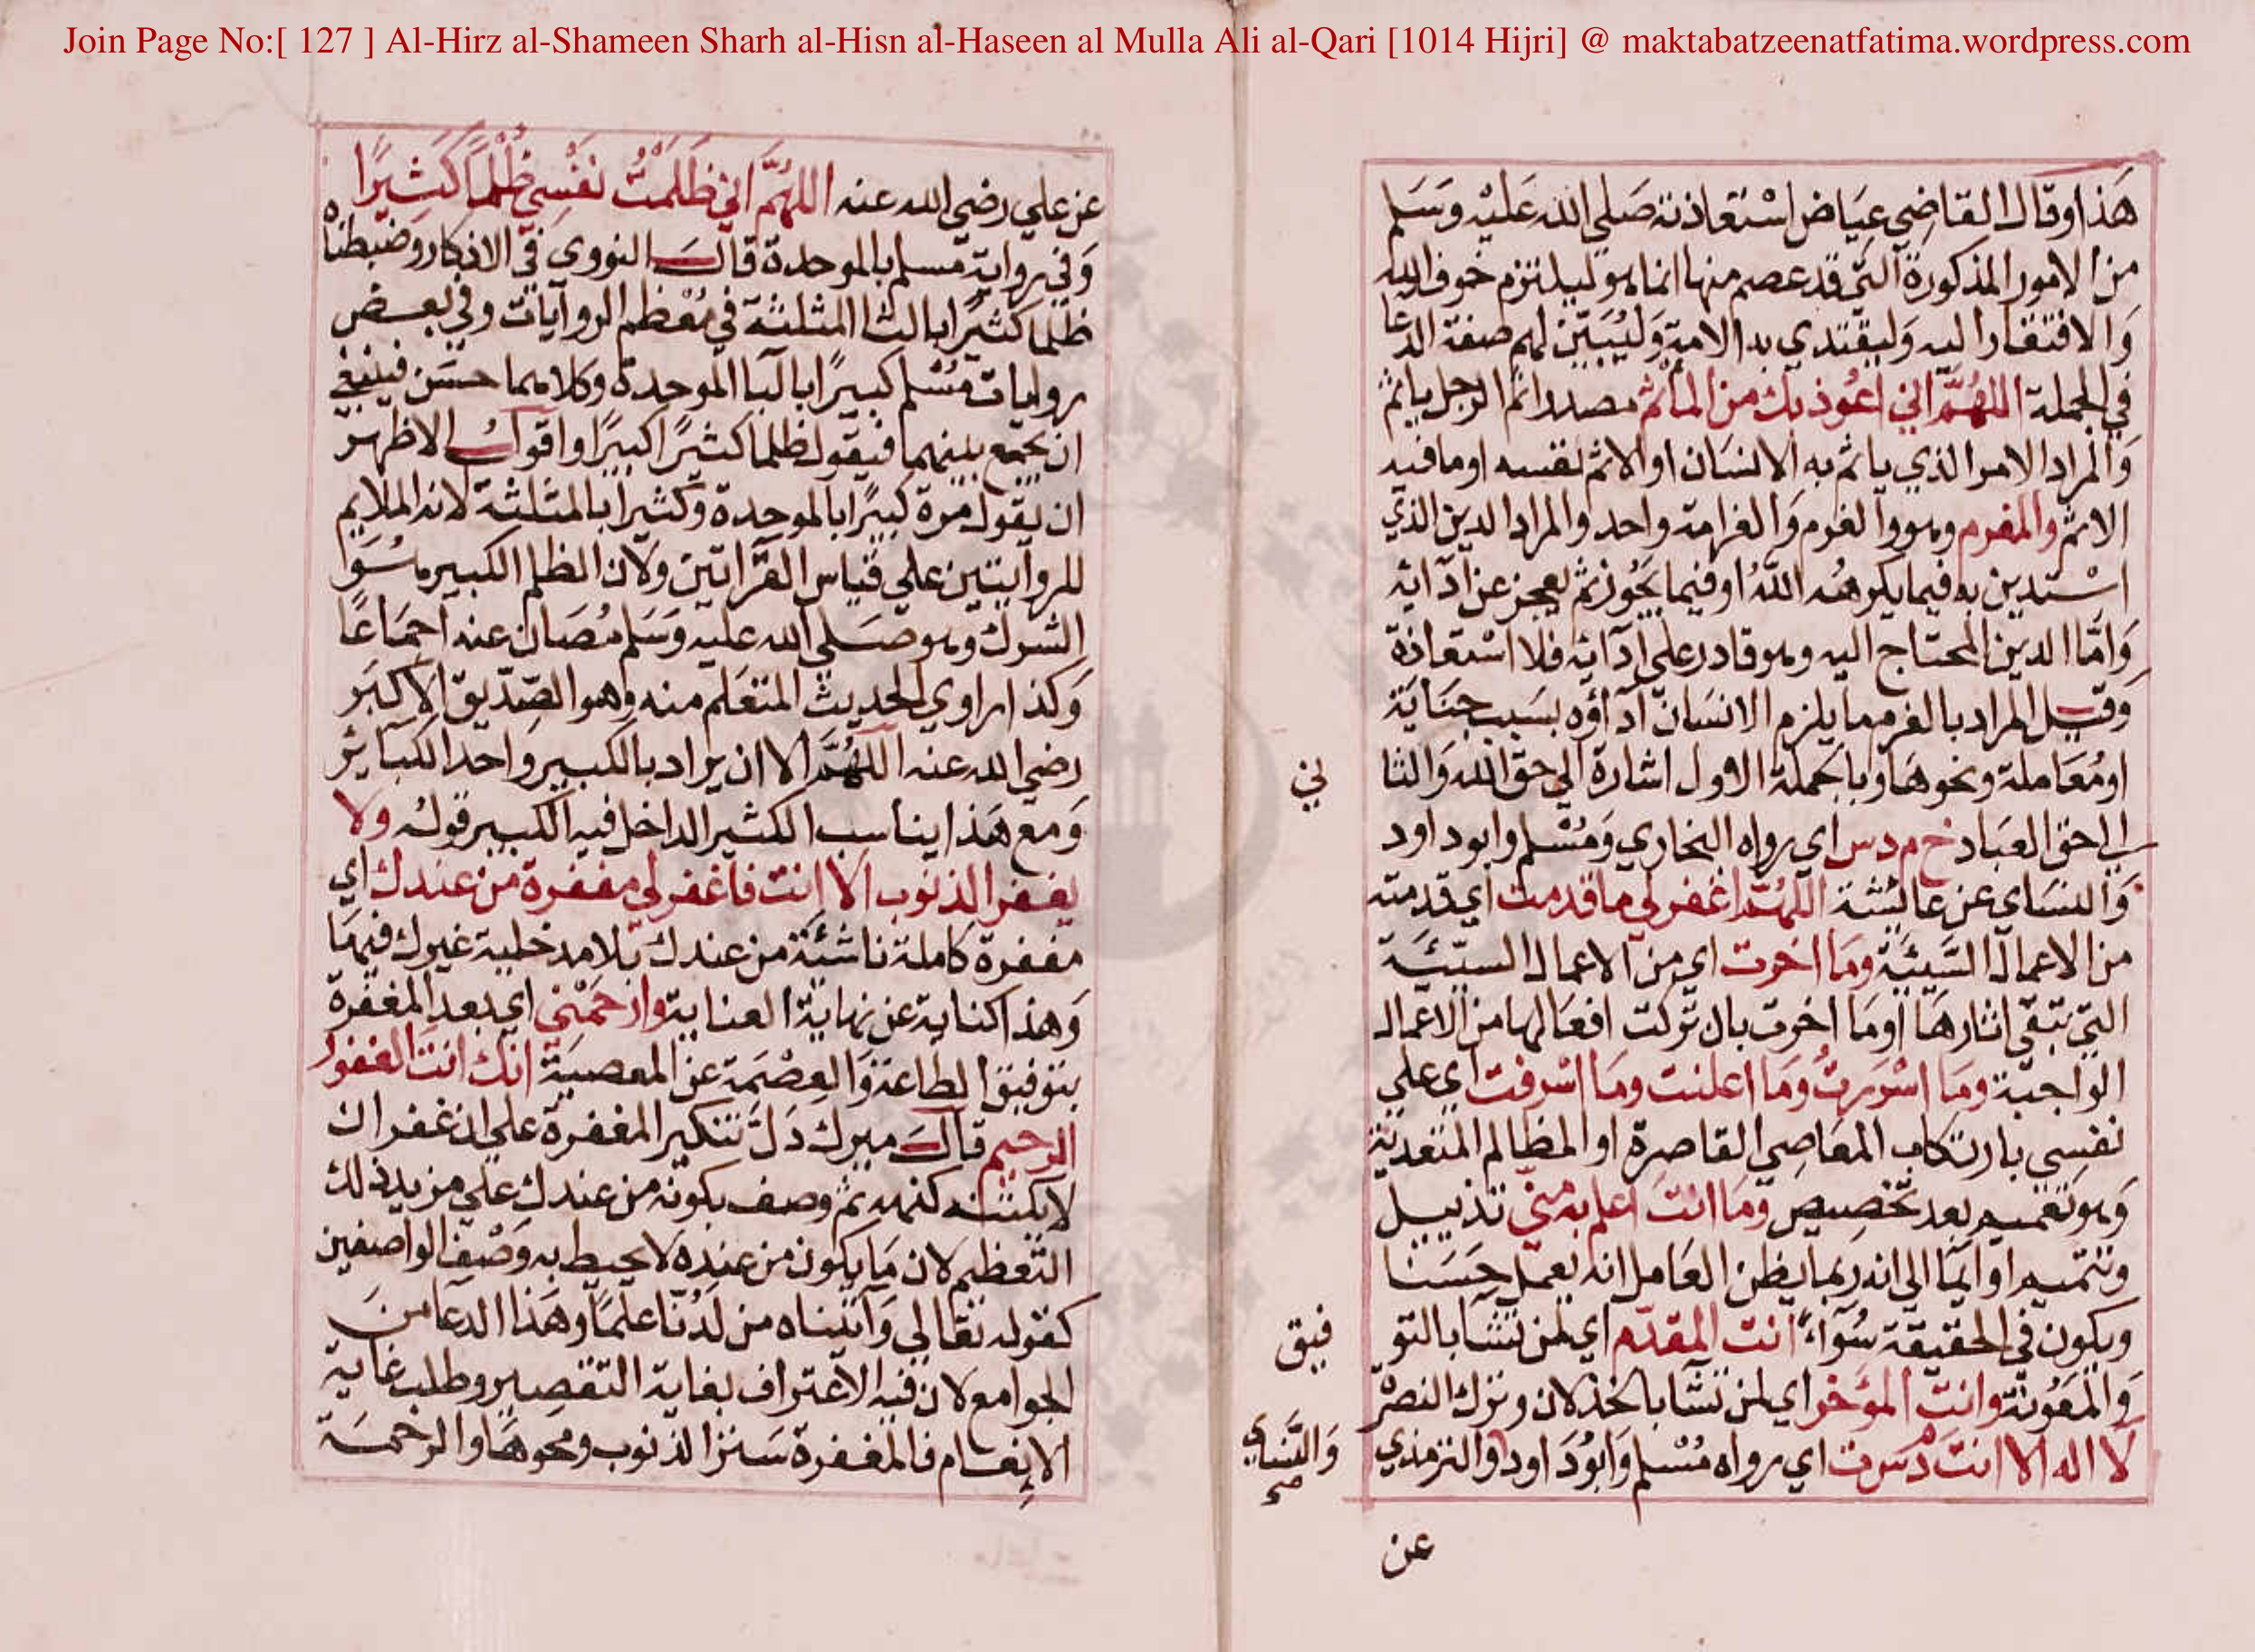 Join Page No:[ 127 ] Al-Hirz al-Shameen Sharh al-Hisn al-Haseen al Mulla Ali al-Qari [1014 Hijri] @ maktabatzeenatfatima.wordpress.com
هذا وقال القاضي عياض استعاذته صلي الله عليه وسلم
من الامور المذكورة التي قد عصم منها انما هو ليلتزم خوف الله
والافتقار اليه وليقتدي به الامة وليبين لهم صفة الدعا
في الجملة اللهم اني اعوذ بك من المأثم مصدر اثم الرجل ياثم
والمراد الامر الذي ياثم به الانسان او الاثم نفسه او ما فيه
الاثم والمغرم وهو والغرم والغرامة واحد والمراد الدين الذي
استدين به فيما يكرهه الله او فيما يجوز ثم يعجز عن ادائه
واما الدين المحتاج اليه وهو قادر علي ادائه فلا استعاذة
وقيل المراد بالغرم ما يلزم الانسان اداؤه بسبب جناية
او معاملة ونحوها وبالجملة الاول اشارة الي حق الله والثا
ني
الي حق العباد خ م د س اي رواه البخاري ومسلم وابو داود
والنساي عن عائشة اللهم اغفر لي ما قدمت اي قدمته
من الاعمال السيئة وما اخرت اي من الاعمال السيئة
التي تبقي اثارها او ما اخرت بان تركت افعالها من الاعمال
الواجبة وما اسررت وما اعلنت وما اسرفت اي علي
نفسي بارتكاب المعاصي القاصرة او المظالم المتعدية
وهو تعميم بعد تخصيص وما انت اعلم به مني تذييل
وتتميم او ايما الي انه ربما يظن العامل انه يعمل حسنا
ويكون في الحقيقة سواء انت المقدم اي لمن تشا بالتو
فيق
والمعونة وانت المؤخر اي لمن تشا بالخذلان وترك النصر
لا اله الا انت م د س ت اي رواه مسلم وابو داود والترمذي
والنساي
صح
عن
عن علي رضي الله عنه اللهم اني ظلمت نفسي ظلما كثيرا
وفي رواية مسلم بالموحدة قال النووي في الاذكار وضبطناه
ظلما كثيرا بالثا المثلثة في معظم الروايات وفي بعض
روايات مسلم كبيرا بالبا الموحدة وكلاهما حسن فينبغي
ان يجمع بينهما فيقول ظلما كثيرا كبيرا واقول الاظهر
ان يقول مرة كبيرا بالموحدة وكثيرا بالمثلثة لانه الملايم
للروايتين علي قياس القراتين ولان الظلم الكبير ما سوا
الشرك وهو صلي الله عليه وسلم مصان عنه اجماعا
وكذا راوي الحديث المتعلم منه وهو الصديق الاكبر
رضي الله عنه اللهم الا ان يراد بالكبير واحد الكبائر
ومع هذا يناسب الكثير الداخل فيه الكبير قوله ولا
يغفر الذنوب الا انت فاغفر لي مغفرة من عندك اي
مغفرة كاملة ناشئة من عندك بلا مدخلية غيرك فيها
وهذا كناية عن نهاية العناية وارحمني اي بعد المغفرة
بتوفيق الطاعة والعصمة عن المعصية انك انت الغفور
الرحيم قال ميرك دل تنكير المغفرة علي ان غفرانك
لا يكتنه كنهه ثم وصف بكونه من عندك علي مزيد ذلك
التعظيم لان ما يكون من عنده لا يحيط به وصف الواصفين
كقوله تعالي وآتيناه من لدنا علما وهذا الدعا من
الجوامع لان فيه الاعتراف بغاية التقصير وطلب غاية
الانعام فالمغفرة ستر الذنوب ومحوها والرحمة